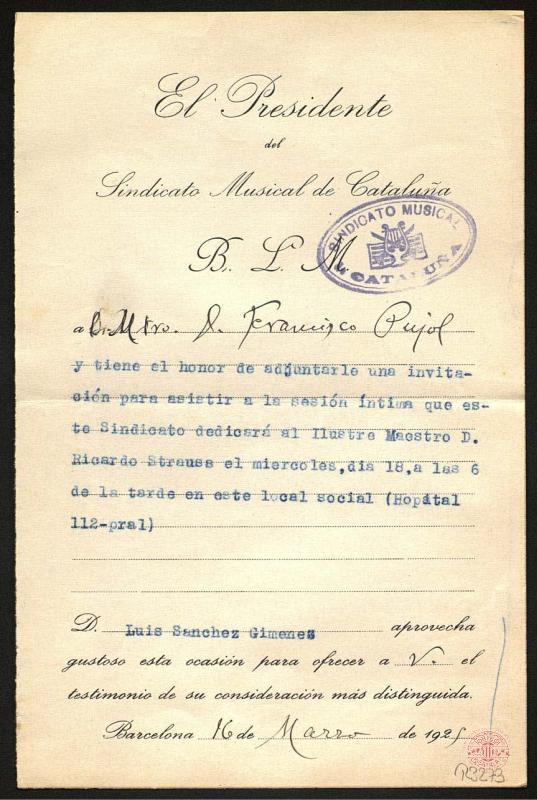 El Presidente
del
Sindicato Musical de Cataluña
B. L. M.
SINDICATO MUSICAL
CATALUÑA
a Mtro. D. Francisco Pujol
y tiene el honor de adjuntarle una invita-
ción para asistir a la sesión íntima que es-
te Sindicato dedicará al Ilustre Maestro D.
Ricardo Strauss el miercoles, dia 18, a las 6
de la tarde en este local social (Hopital
112-pral)
D. Luis Sanchez Gimenez aprovecha
gustoso esta ocasión para ofrecer a V. el
testimonio de su consideración más distinguida.
Barcelona 16 de Marzo de 1925
R3273